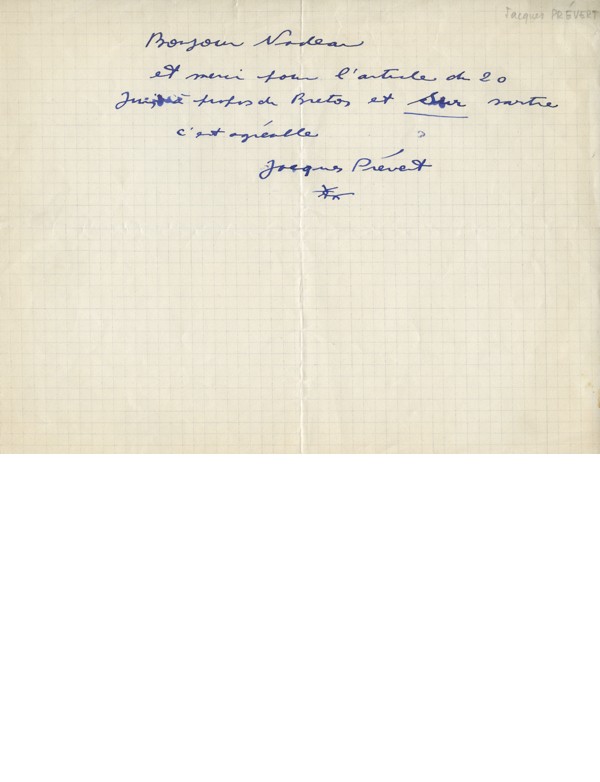 Jacques PRÉVERT
Bonjour Nadeau
et merci pour l'article du 20
à propos de Breton et Sur sartre
c'est agréable
Jacques Prévert